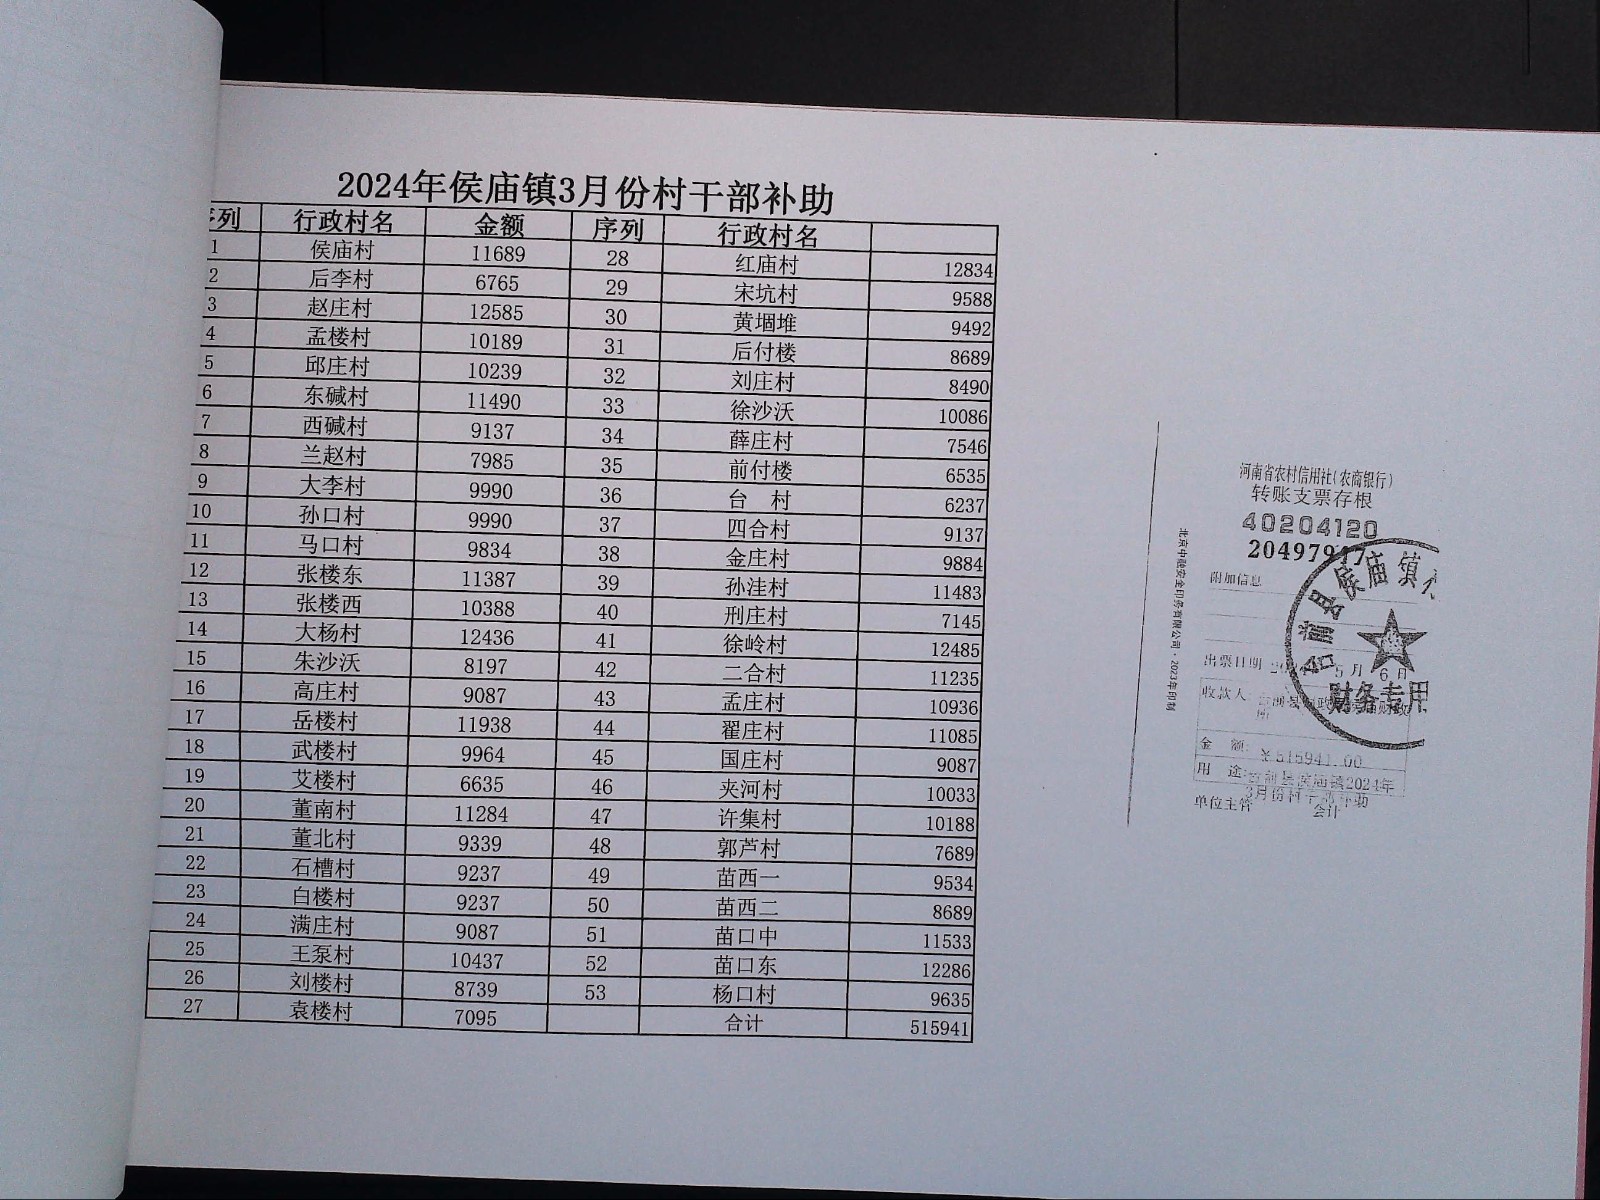 2024年侯庙镇3月份村干部补助
序列 行政村名 金额 序列 行政村名
1 侯庙村 11689 28 红庙村 12834
2 后李村 6765 29 宋坑村 9588
3 赵庄村 12585 30 黄堌堆 9492
4 孟楼村 10189 31 后付楼 8689
5 邱庄村 10239 32 刘庄村 8490
6 东碱村 11490 33 徐沙沃 10086
7 西碱村 9137 34 薛庄村 7546
8 兰赵村 7985 35 前付楼 6535
9 大李村 9990 36 台 村 6237
10 孙口村 9990 37 四合村 9137
11 马口村 9834 38 金庄村 9884
12 张楼东 11387 39 孙洼村 11483
13 张楼西 10388 40 刑庄村 7145
14 大杨村 12436 41 徐岭村 12485
15 朱沙沃 8197 42 二合村 11235
16 高庄村 9087 43 孟庄村 10936
17 岳楼村 11938 44 翟庄村 11085
18 武楼村 9964 45 国庄村 9087
19 艾楼村 6635 46 夹河村 10033
20 董南村 11284 47 许集村 10188
21 董北村 9339 48 郭芦村 7689
22 石槽村 9237 49 苗西一 9534
23 白楼村 9237 50 苗西二 8689
24 满庄村 9087 51 苗口中 11533
25 王泵村 10437 52 苗口东 12286
26 刘楼村 8739 53 杨口村 9635
27 袁楼村 7095 合计 515941
河南省农村信用社(农商银行)
转账支票存根
40204120
204979
附加信息
出票日期 5月 6日
收款人
金 额: ¥515941.00
用 途: 台前县侯庙镇2024年
3月份村干部补助
单位主管 会计
台前县侯庙镇
财务专用
北京中融安全印务有限公司·2023年印制